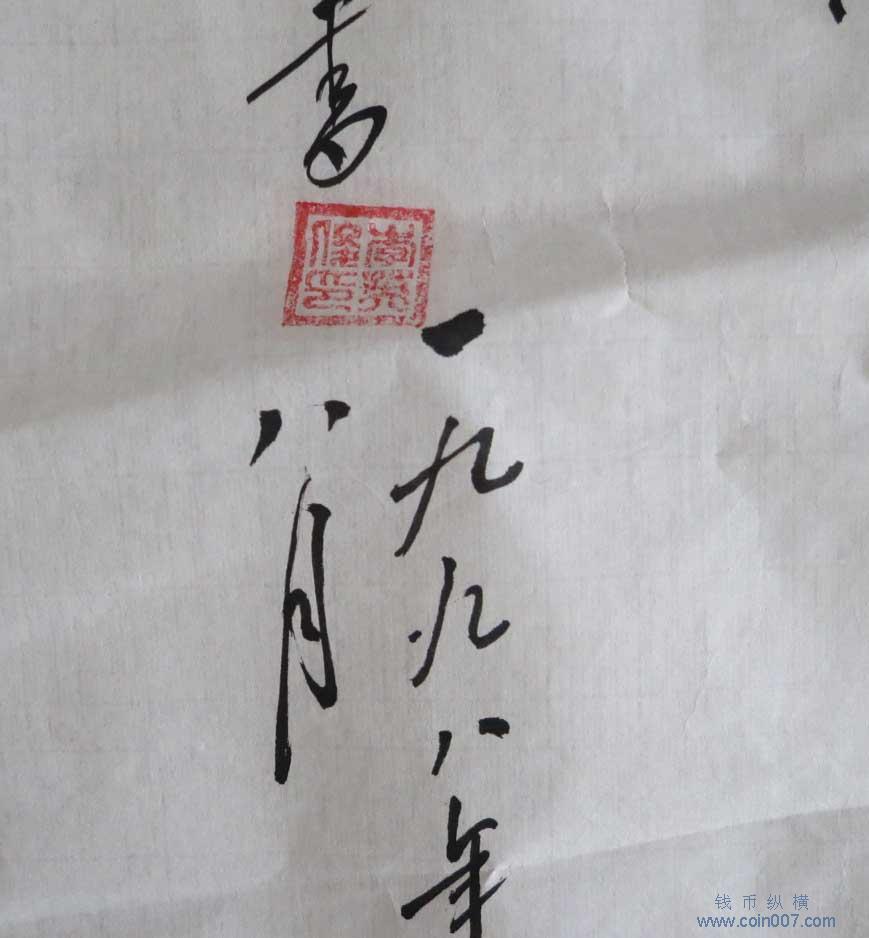 書
一九九八年
八月
钱币纵横
www.coin007.com